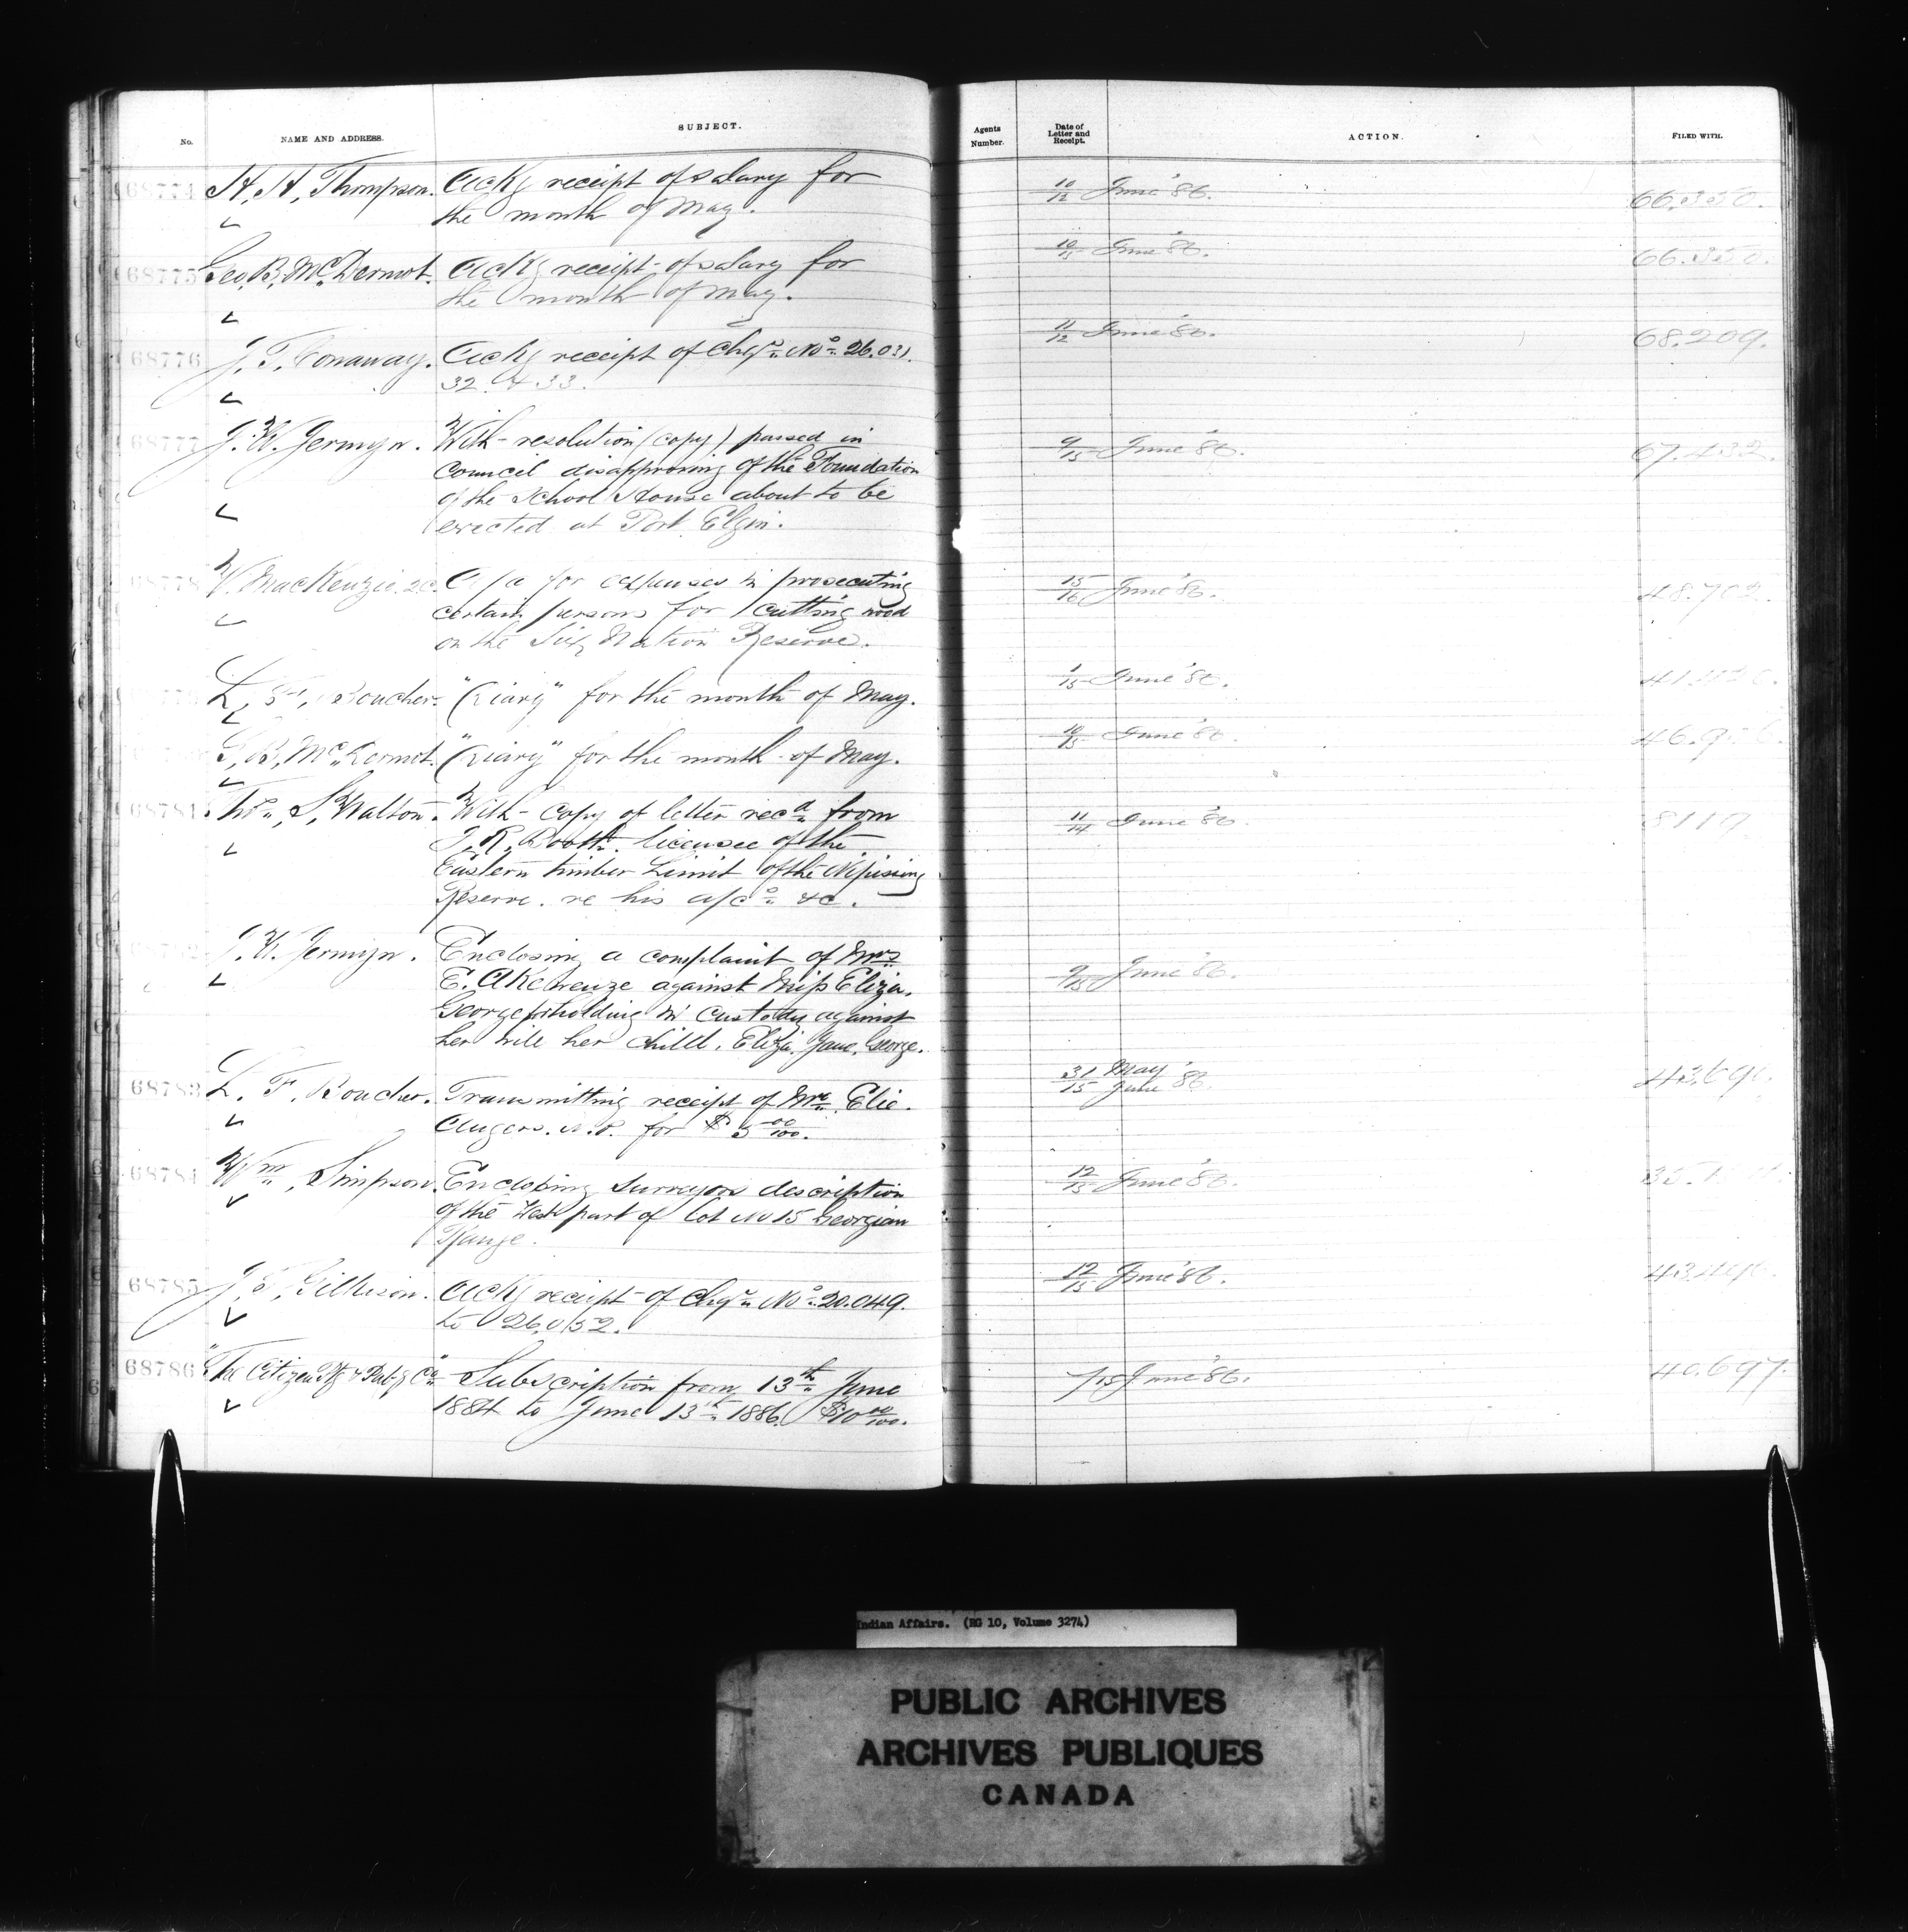 No. NAME AND ADDRESS. SUBJECT. Agents Number. Date of Letter and Receipt. ACTION. FILED WITH.
68774 H. H. Thompson. Ackg receipt of salary for 10/12 June '86. 66.350.
the month of May.
68775 Geo. B. McDermot. Ackg receipt of salary for 10/15 June '86. 66.350.
the month of May.
68776 J. T. Conaway. Ackg receipt of chqs. Nos. 26.031. 11/12 June '86. 68.209.
32. & 33.
68777 J. W. Jermyn. With resolution (copy) passed in 9/15 June '86. 67.432.
Council disapproving of the Foundation
of the School House about to be
erected at Port Elgin.
68778 W. MacKenzie. a/c for expenses in prosecuting 15/16 June '86. 48.702.
certain persons for cutting wood
on the Six Nation Reserve.
L. F. Boucher. "Diary" for the month of May. 1/15 June '86.
G. B. McDermot. "Diary" for the month of May. 10/15 June '86.
68781 Thos. S. Walton. With copy of letter recd from 11/14 June '86. 8117
J. R. Booth. licensee of the
Eastern timber Limit of the Nipissing
Reserve. re his a/cs &c.
J. W. Jermyn. Enclosing a complaint of Mrs 9/15 June '86.
E. against Miss Eliza.
George for holding in custody against
her will her child. Eliza Jane George.
68783 L. F. Boucher. Transmitting receipt of Mr. Elie. 31 May / 15 June '86. 43.691.
Angers. N.P. for $5 00/100.
68784 Wm. Simpson. Enclosing Surveyors description 12/15 June '86.
of the West part of lot No 15 Georgian
Range.
68785 J. T. Gilkison. Ackg receipt of chqs. Nos. 20.049. 12/15 June '86.
to 26.052.
68786 "The Citizen Ptg & Pubg Co." Subscription from 13th June /15 June '86. 40.697.
1884 to June 13th 1886. $10 00/100.
Indian Affairs. (RG 10, Volume 3274)
PUBLIC ARCHIVES
ARCHIVES PUBLIQUES
CANADA